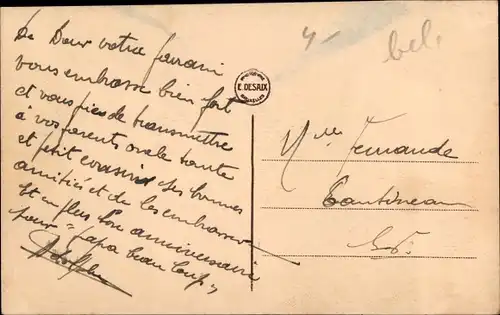 votre parrain
vous embrasse bien fort
et vous prie de transmettre
à vos parents oncle tante
et petit cousin ses bonnes
amitiés et de les embrasser
Et en plus bon anniversaire
pour papa beaucoup
E. DESAIX
BRUXELLES
bel.
Mlle Fernande